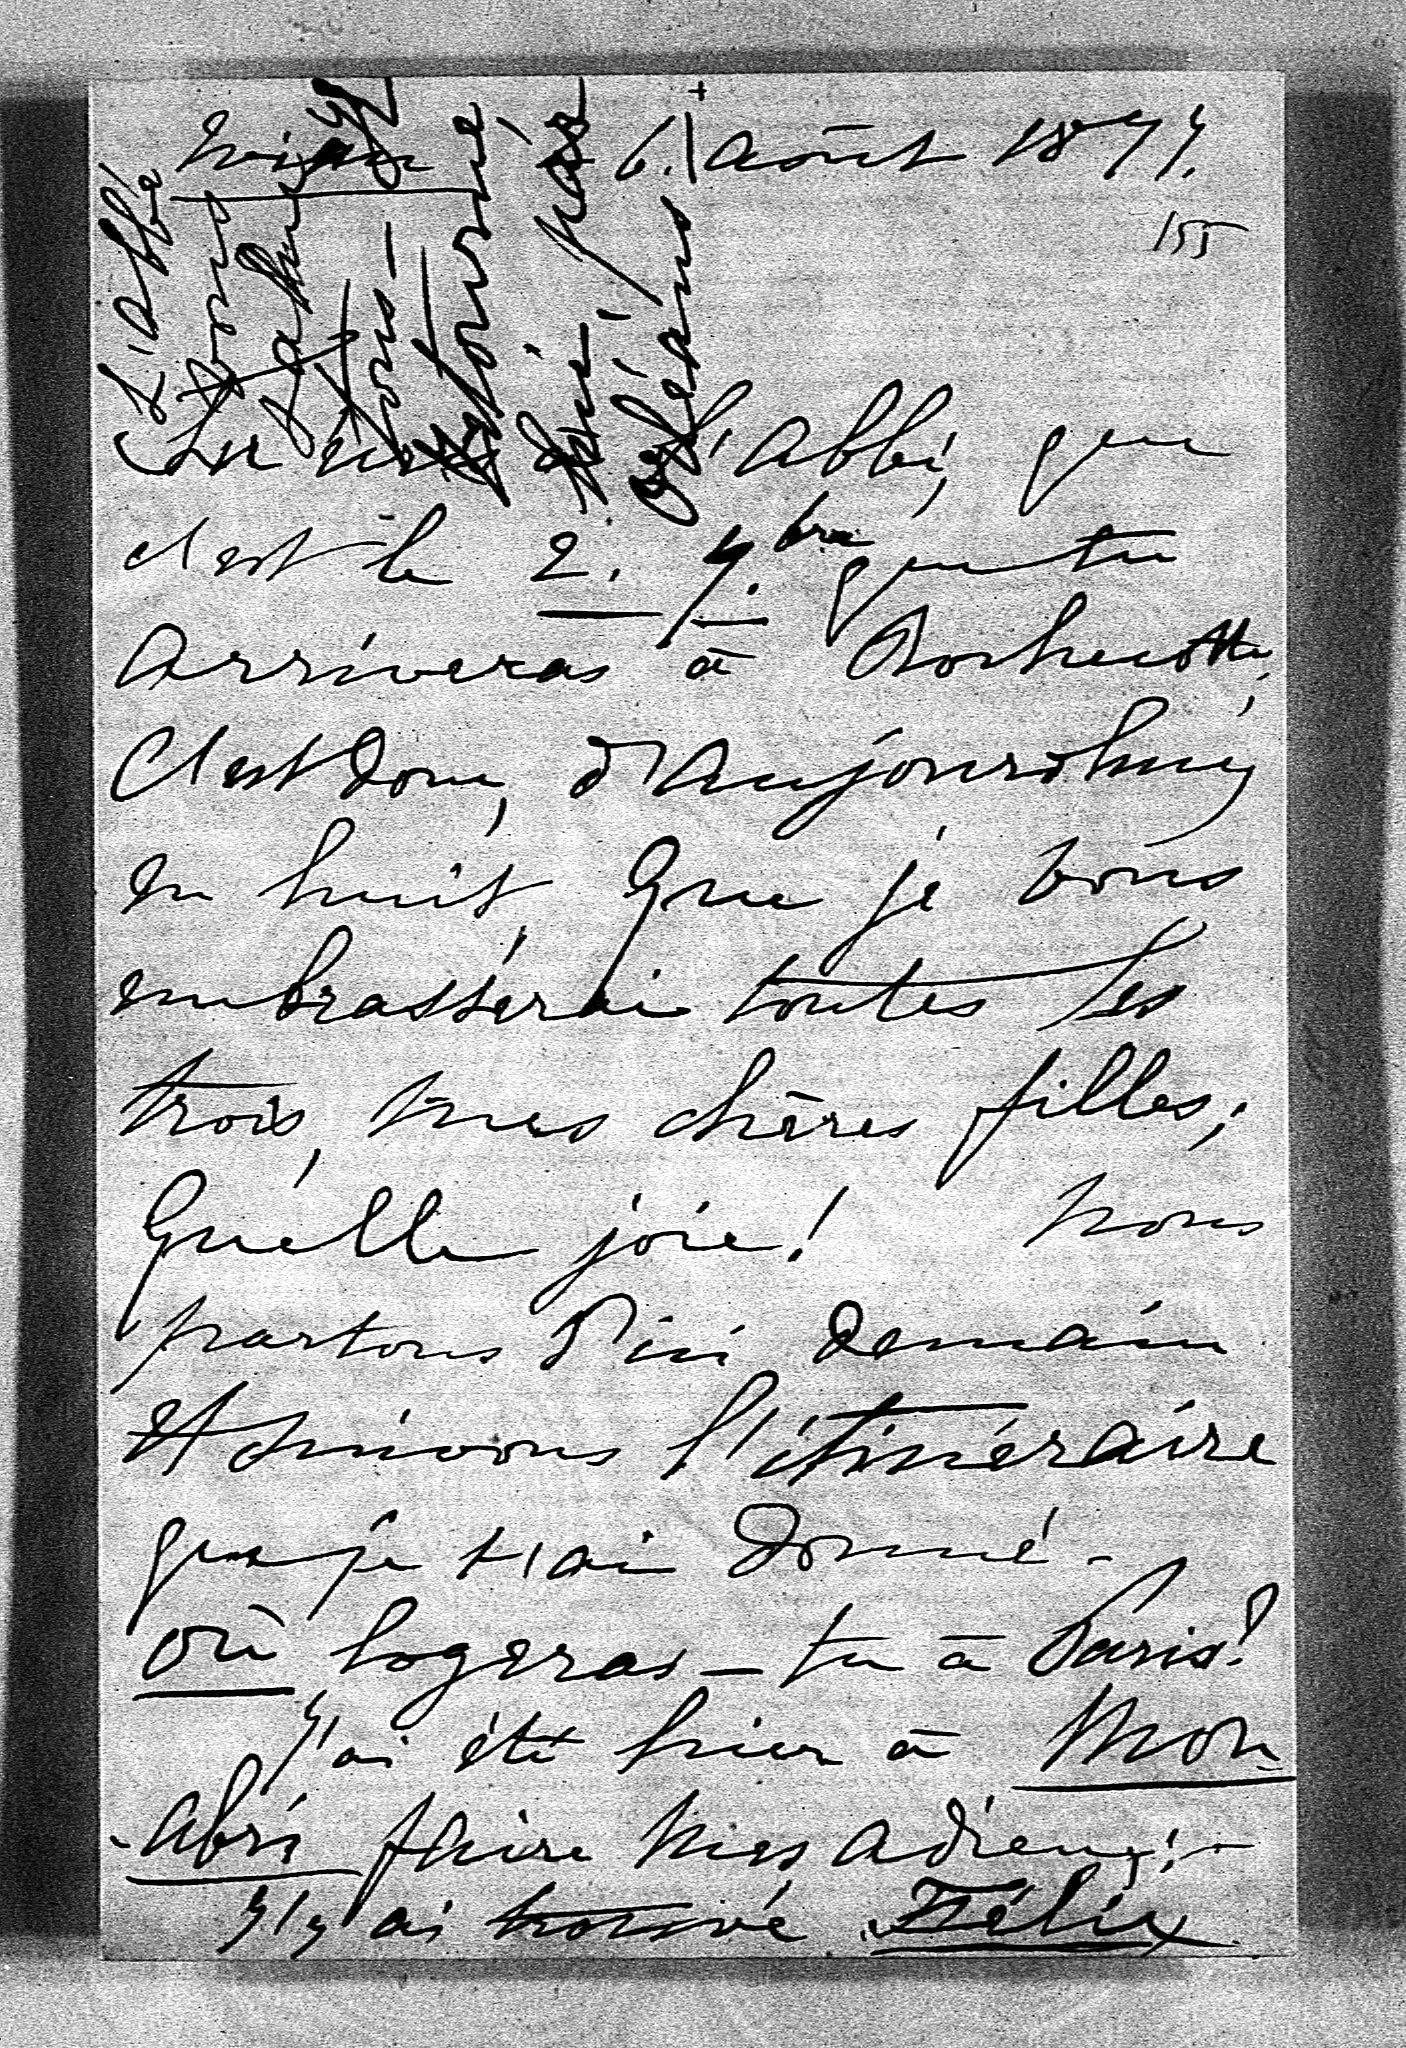 6. Août 1877.
155
L'abbé
vous
est
retourné
hier
près
Orléans
l'abbé, que
c'est le 2. 7.bre que tu
arriveras à Rochecotte,
C'est donc, d'aujourd'huy
en huit, que je vous
embrasserai toutes les
trois, mes chères filles;
Quelle joie! Nous
partons d'ici demain
et suivons l'itinéraire
que je t'ai donné -
où logeras-tu à Paris?
J'ai été hier à Mon
abri faire mes adieux! -
J'y ai trouvé Félix